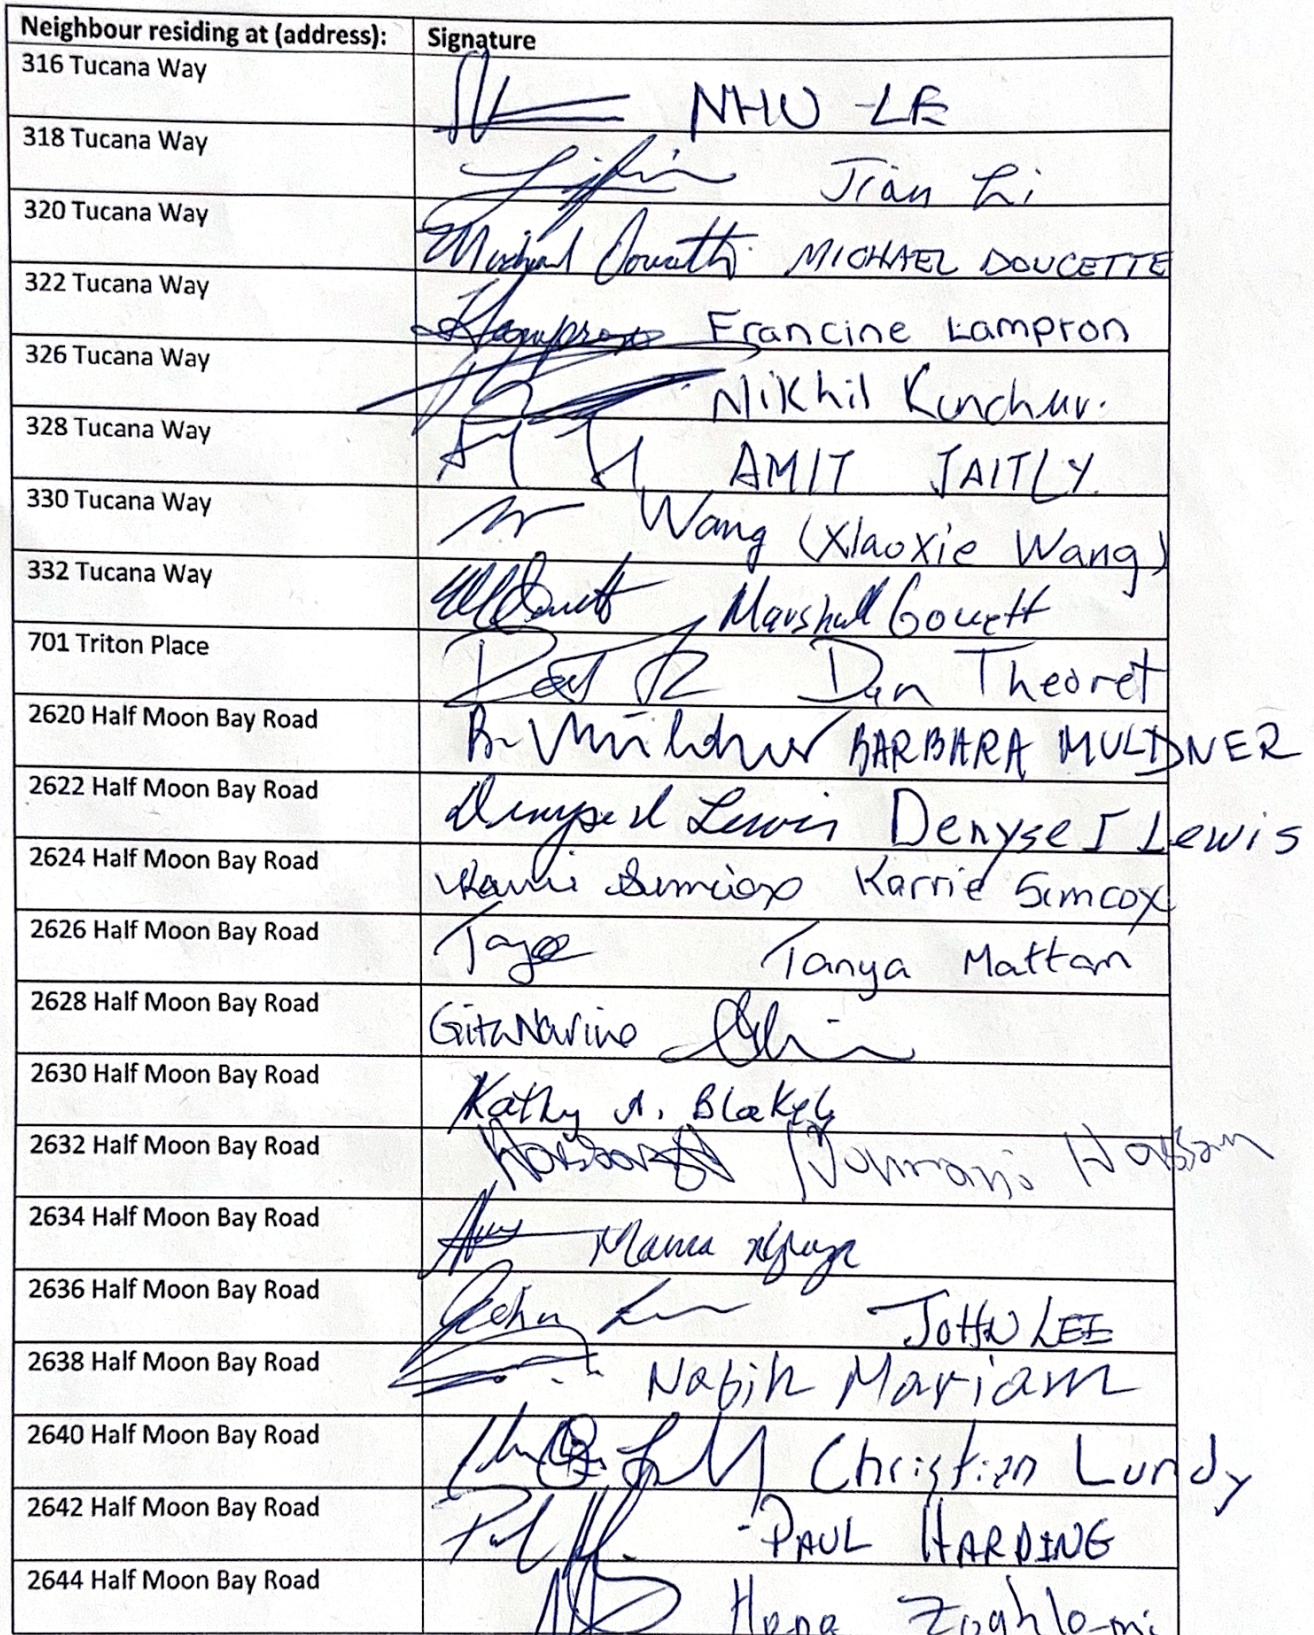 Neighbour residing at (address): Signature
316 Tucana Way NHU LE
318 Tucana Way Jian Li
320 Tucana Way Michael Doucette MICHAEL DOUCETTE
322 Tucana Way Francine Lampron
326 Tucana Way Nikhil
328 Tucana Way AMIT JAITLY
330 Tucana Way Wang (Xiaoxie Wang)
332 Tucana Way Marshall
701 Triton Place Dan Theoret
2620 Half Moon Bay Road B. Muldner BARBARA MULDNER
2622 Half Moon Bay Road Denyse I Lewis Denyse I Lewis
2624 Half Moon Bay Road Karrie Simcox Karrie Simcox
2626 Half Moon Bay Road Tanya Mattam
2628 Half Moon Bay Road Gita
2630 Half Moon Bay Road Kathy A. Blakely
2632 Half Moon Bay Road
2634 Half Moon Bay Road
2636 Half Moon Bay Road John Lee JOHN LEE
2638 Half Moon Bay Road Nabih Mariam
2640 Half Moon Bay Road Christian Lundy
2642 Half Moon Bay Road PAUL HARDING
2644 Half Moon Bay Road Zoghlami